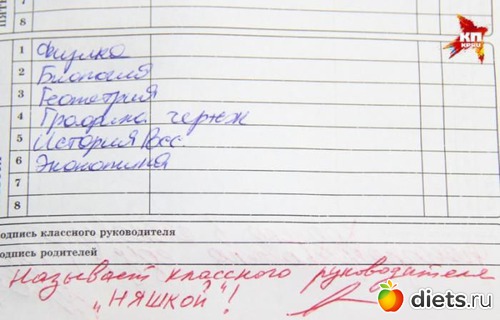 8
КП
KP.RU
1 Физика
2 Биология
3 Геометрия
4 Графика черчж
5 История Росс.
6 Экономика
7
8
одпись классного руководителя
одпись родителей
Называет классного руководителя
"НЯШКОЙ"!
diets.ru